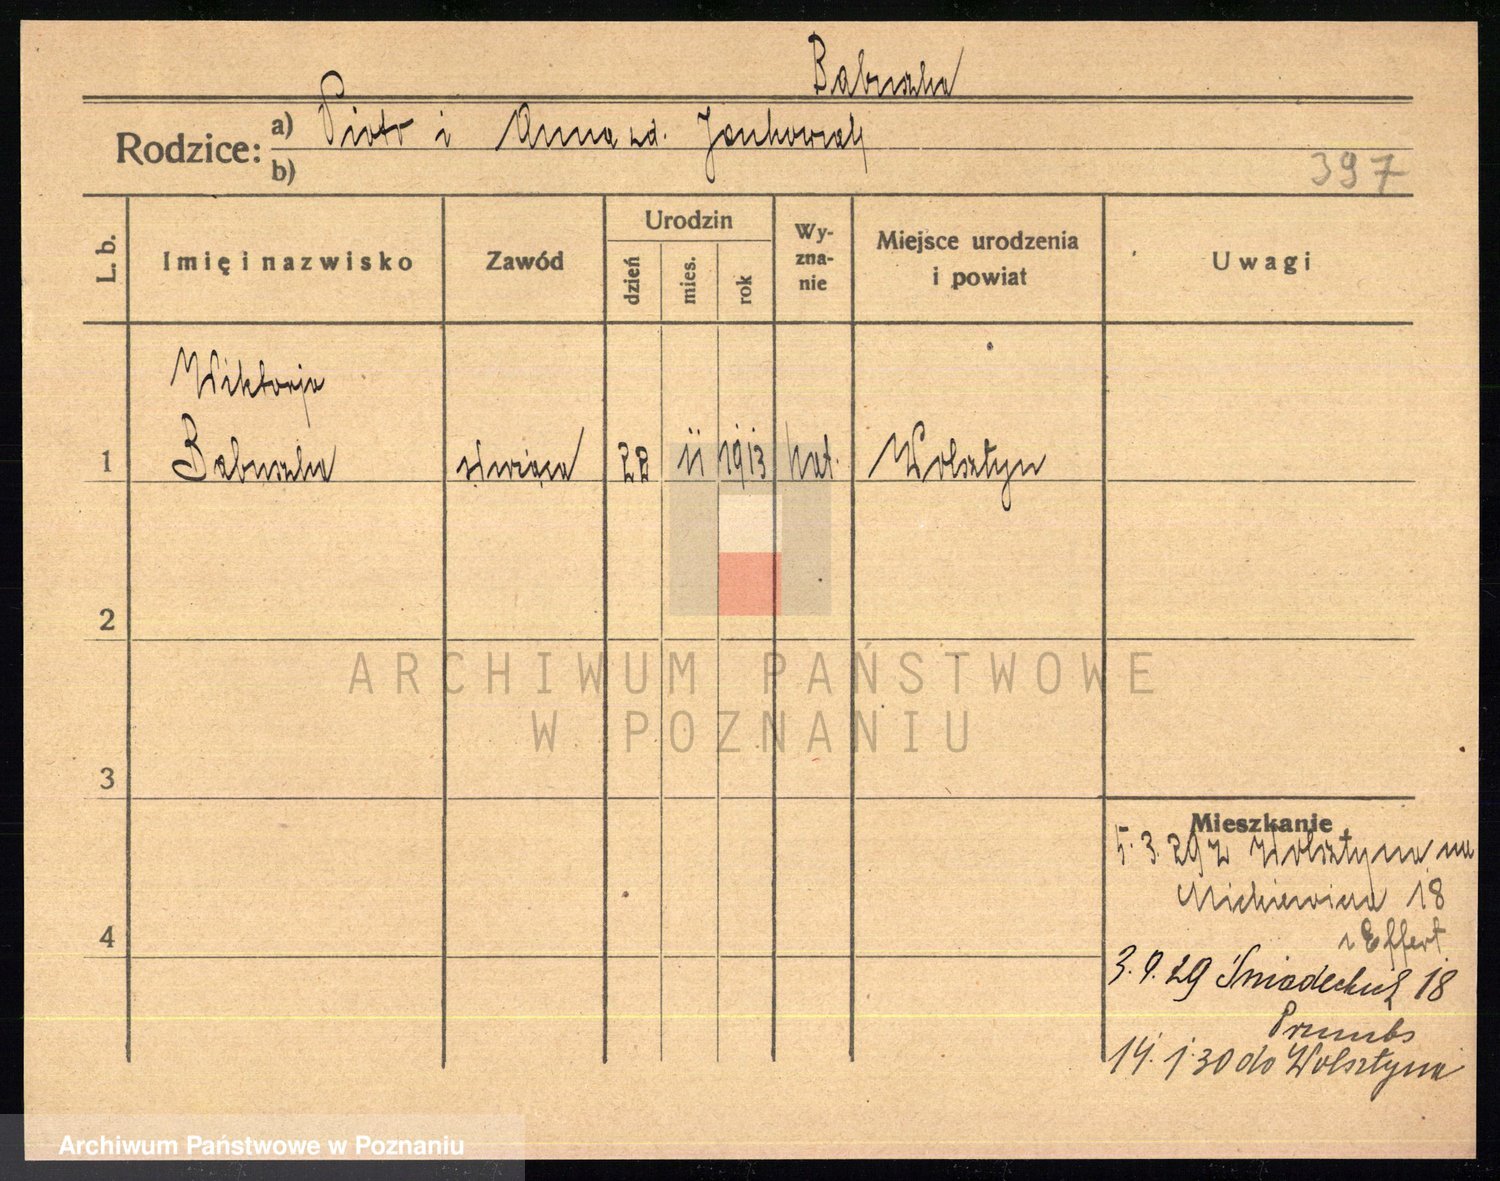 Babuszka
Rodzice: a) Piotr i Anna zd. Jankowiak
b)
397
L. b.
Imię i nazwisko
Zawód
Urodzin
dzień
mies.
rok
Wy-
zna-
nie
Miejsce urodzenia
i powiat
Uwagi
Wiktorja
1 Babuszka służąca 22 11 1913 kat. Wolsztyn
2
ARCHIWUM PAŃSTWOWE
W POZNANIU
3
4
Mieszkanie
5.3.29 z Wolsztyna na
Mickiewicza 18
Effert
3.9.29 Śniadeckich 18
14.1.30 do Wolsztyna
Archiwum Państwowe w Poznaniu